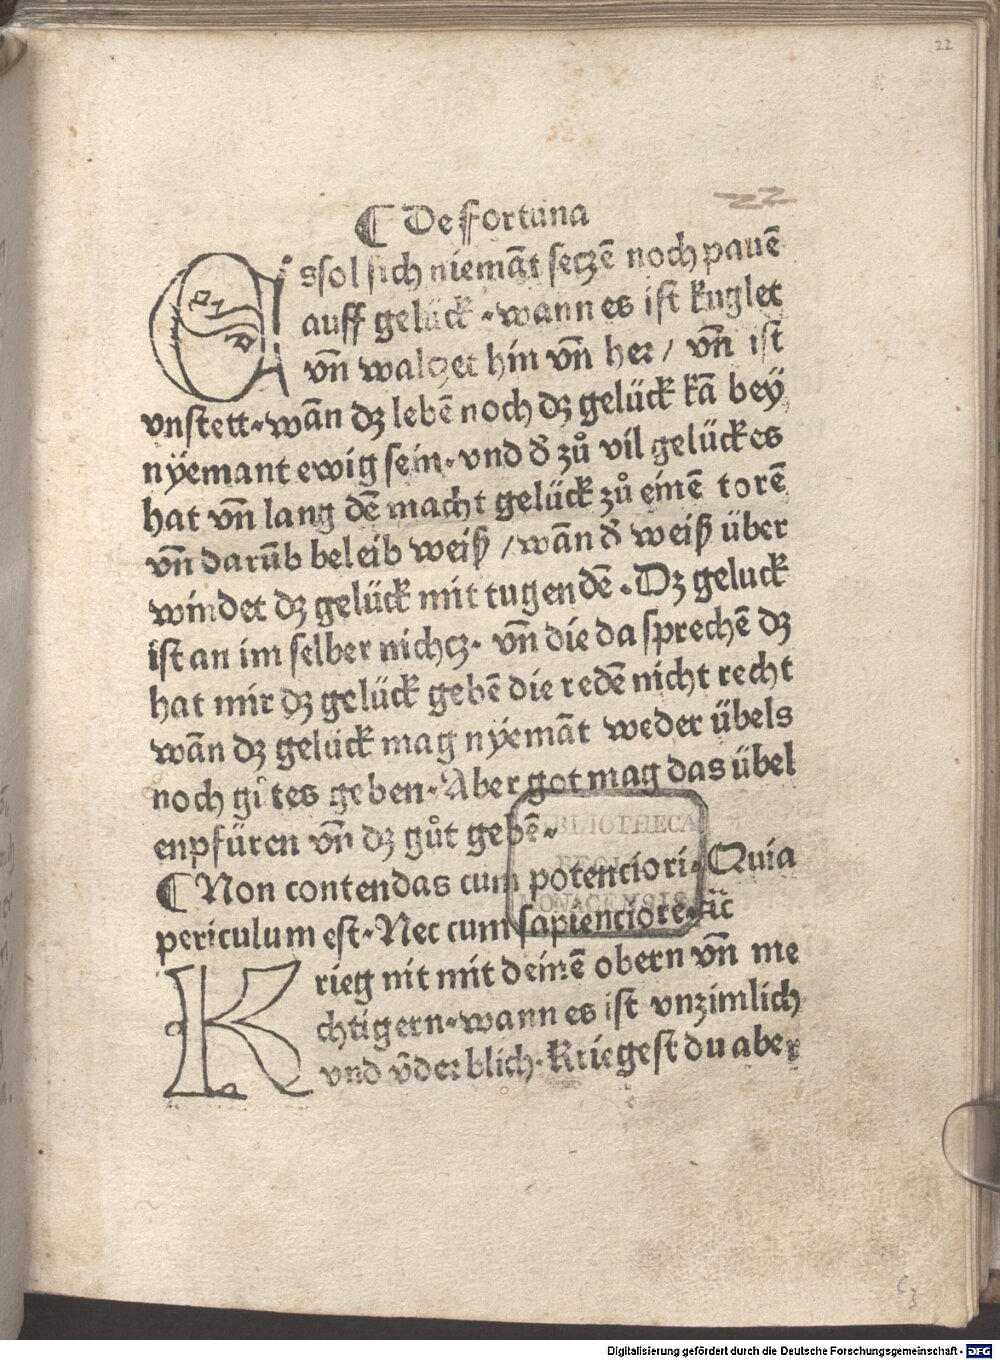 22
22
⸿ De fortuna
Es sol sich niemāt seczē noch pauē
auff gelück. wann es ist kuglet
vn̄ walczet hin vn̄ her / vn̄ ist
vnstett. wān dꝫ lebē noch dꝫ gelück kā bey
nÿemant ewig sein. vnd d̄ zů vil gelückes
hat vn̄ lang dē macht gelück zů einē torē
vn̄ darūb beleib weiß / wān d̄ weiß über
windet dꝫ gelück mit tugendē. Dꝫ geluck
ist an im selber nichcz. vn̄ die da sprechē dꝫ
hat mir dꝫ gelück gebē die redē nicht recht
wān dꝫ gelück mag nÿemāt weder übels
noch gůtes geben. Aber got mag das übel
enpfüren vn̄ dꝫ gůt gebē.
⸿ Non contendas cum potenciori. Quia
periculum est. Nec cum sapienciore. ⁊c̄
BIBLIOTHECA
REGIA
MONACENSIS
Krieg nit mit deinē obern vn̄ me
chtigern. wann es ist vnzimlich
vnd v̄derblich. Kriegest du aber
c3
Digitalisierung gefördert durch die Deutsche Forschungsgemeinschaft - DFG